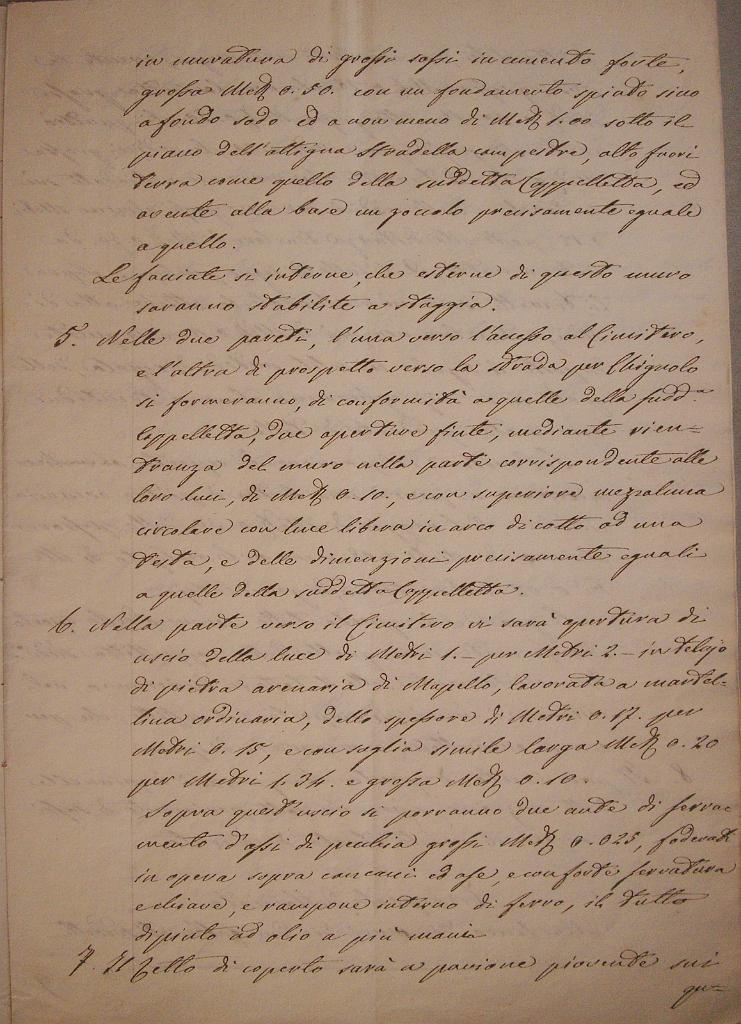 in muratura di grossi sassi in cemento forte,
grossa Met. 0.50. con un fondamento spinto sino
a fondo sodo ed a non meno di Met. 1.00 sotto il
piano dell'attigua stradella campestre, alto fuori
terra come quello della suddetta Cappelletta, ed
avente alla base un zoccolo precisamente eguale
a quello.
Le facciate sì interne, che esterne di questo muro
saranno stabilite a staggia.
5. Nelle due pareti, l'una verso l'accesso al Cimitero,
e l'altra di prospetto verso la strada per Chignolo
si formeranno, di conformità a quelle della sudd.a
Cappelletta, due aperture finte, mediante rien=
tranza del muro nella parte corrispondente alle
loro luci, di Met. 0.10., e con superiore mezzaluna
circolare con luce libera in arco di cotto ad una
testa, e delle dimenzioni precisamente eguali
a quelle della suddetta Cappelletta.
6. Nella parte verso il Cimitero vi sarà apertura di
uscio della luce di Metri 1.- per Metri 2.- in telajo
di pietra arenaria di Mapello, lavorata a martel=
lina ordinaria, dello spessore di Metri 0.17. per
Metri 0.15, e con soglia simile larga Met. 0.20
per Metri 1.34. e grossa Met. 0.10.
Sopra quest'uscio si porranno due ante di serra=
mento d'assi di pecchia grossi Met. 0.025, foderati
in opera sopra cancani ed ase, e con forte serratura
e chiave, e rampone interno di ferro, il tutto
dipinto ad olio a più mani
7. Il tetto di coperto sarà a pavione piovente sui
qu=